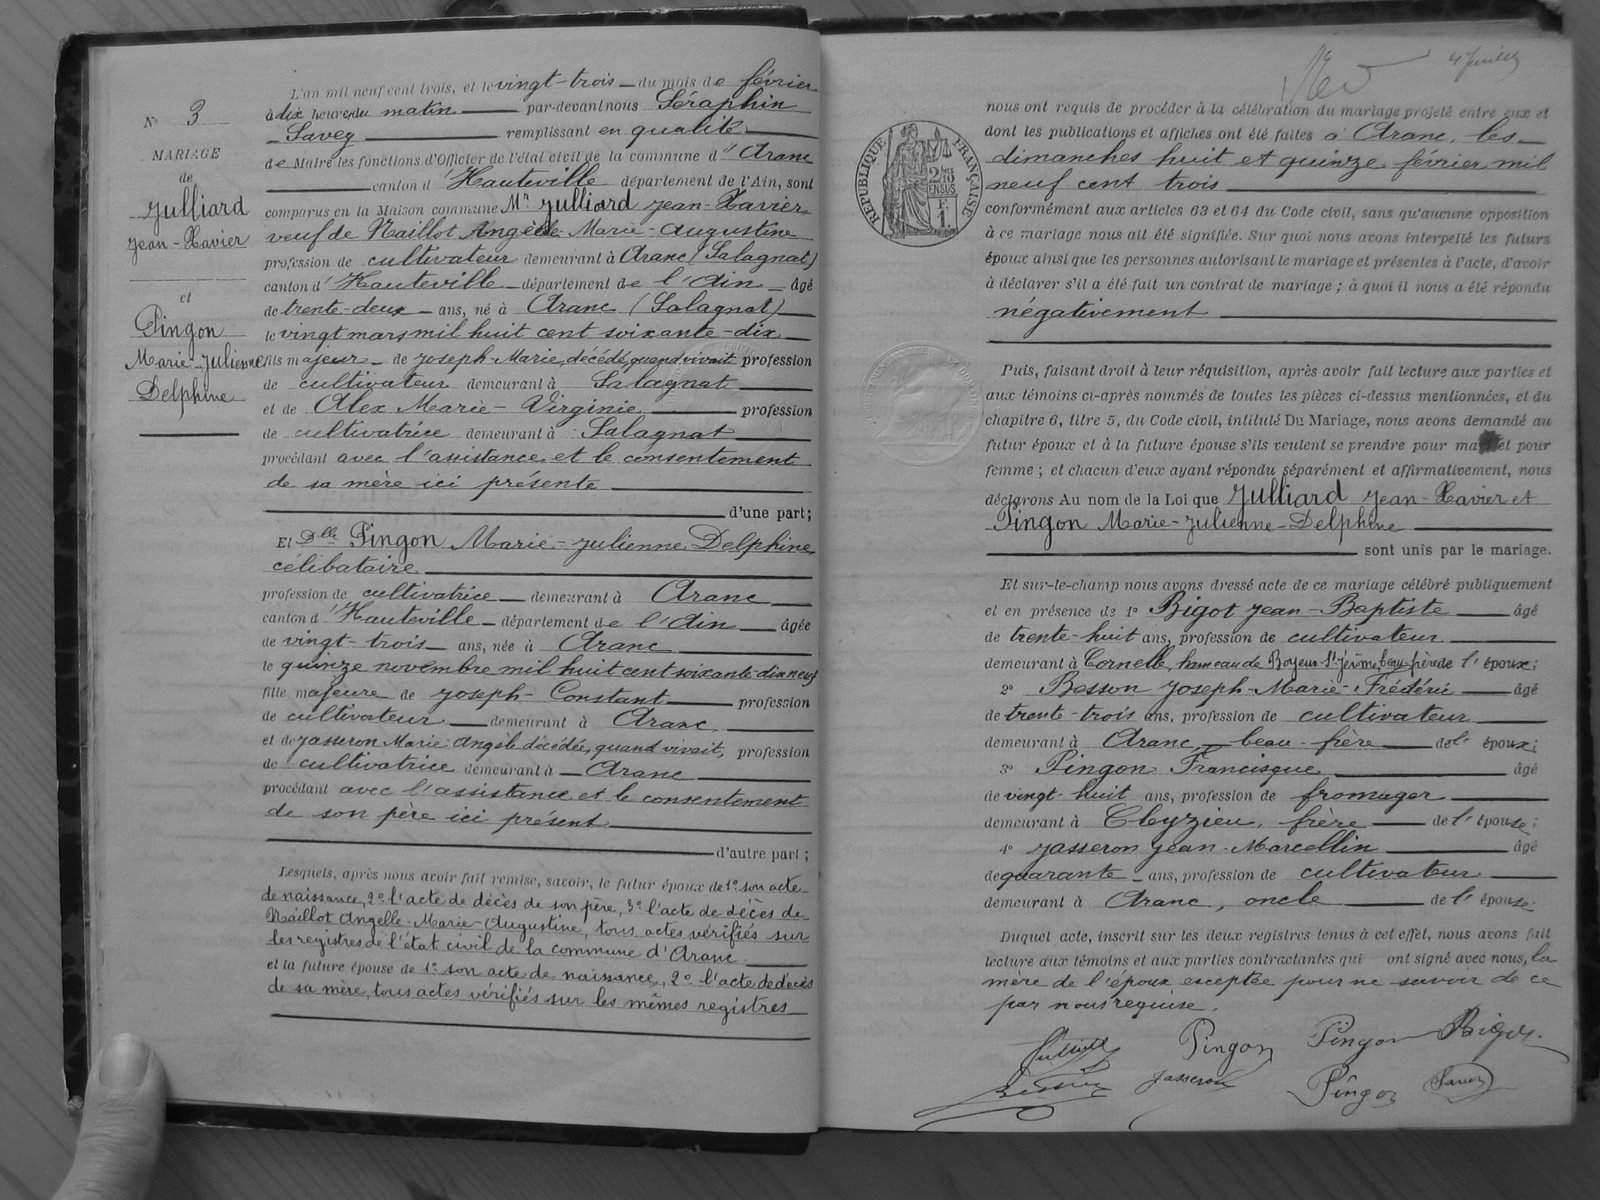 N° 3
MARIAGE
de
Julliard
Jean-Xavier
et
Pingon
Marie-Julienne
Delphine
L'an mil neuf cent trois, et le vingt-trois du mois de février
à dix heures du matin par-devant nous Séraphin
Savey remplissant en qualité
de Maire les fonctions d'Officier de l'état civil de la commune d'Aranc
canton d'Hauteville département de l'Ain, sont
comparus en la Maison commune Mr Julliard Jean-Xavier
veuf de Naillot Angèle-Marie-Augustine
profession de cultivateur demeurant à Aranc (Salagnat)
canton d'Hauteville département de l'Ain âgé
de trente-deux ans, né à Aranc (Salagnat)
le vingt mars mil huit cent soixante-dix
fils majeur de Joseph-Marie, décédé, quand vivait profession
de cultivateur demeurant à Salagnat
et de Alex Marie-Virginie, profession
de cultivatrice demeurant à Salagnat
procédant avec l'assistance et le consentement
de sa mère ici présente
d'une part;
Et Dlle Pingon Marie-Julienne Delphine
célibataire
profession de cultivatrice demeurant à Aranc
canton d'Hauteville département de l'Ain âgée
de vingt-trois ans, née à Aranc
le quinze novembre mil huit cent soixante-dix neuf
fille majeure de Joseph-Constant profession
de cultivateur demeurant à Aranc
et de Jasseron Marie Angèle décédée, quand vivait, profession
de cultivatrice demeurant à Aranc
procédant avec l'assistance et le consentement
de son père ici présent
d'autre part;
Lesquels, après nous avoir fait remise, savoir, le futur époux de 1° son acte
de naissance, 2° l'acte de décès de son père, 3° l'acte de décès de
Naillot Angelle-Marie-Augustine, tous actes vérifiés sur
les registres de l'état civil de la commune d'Aranc
et la future épouse de 1° son acte de naissance, 2° l'acte de décès
de sa mère, tous actes vérifiés sur les mêmes registres
4 Juillet
RÉPUBLIQUE FRANÇAISE
nous ont requis de procéder à la célébration du mariage projeté entre eux et
dont les publications et affiches ont été faites à Aranc, les
dimanches huit et quinze février mil
neuf cent trois
conformément aux articles 63 et 64 du Code civil, sans qu'aucune opposition
à ce mariage nous ait été signifiée. Sur quoi nous avons interpellé les futurs
époux ainsi que les personnes autorisant le mariage et présentes à l'acte, d'avoir
à déclarer s'il a été fait un contrat de mariage; à quoi il nous a été répondu
négativement
Puis, faisant droit à leur réquisition, après avoir fait lecture aux parties et
aux témoins ci-après nommés de toutes les pièces ci-dessus mentionnées, et du
chapitre 6, titre 5, du Code civil, intitulé Du Mariage, nous avons demandé au
futur époux et à la future épouse s'ils veulent se prendre pour mari et pour
femme; et chacun d'eux ayant répondu séparément et affirmativement, nous
déclarons Au nom de la Loi que Julliard Jean-Xavier et
Pingon Marie-Julienne-Delphine
sont unis par le mariage.
Et sur-le-champ nous avons dressé acte de ce mariage célébré publiquement
et en présence de 1° Bigot Jean-Baptiste âgé
de trente-huit ans, profession de cultivateur
demeurant à Cornelle, hameau de Boyeux-St-Jérôme, beau-frère de l'époux;
2° Besson Joseph-Marie-Frédéric âgé
de trente-trois ans, profession de cultivateur
demeurant à Aranc, beau-frère de l'époux;
3° Pingon Francisque âgé
de vingt-huit ans, profession de fromager
demeurant à Cleyzieu, frère de l'épouse;
4° Jasseron Jean-Marcellin âgé
de quarante ans, profession de cultivateur
demeurant à Aranc, oncle de l'épouse
Duquel acte, inscrit sur les deux registres tenus à cet effet, nous avons fait
lecture aux témoins et aux parties contractantes qui ont signé avec nous, la
mère de l'époux exceptée pour ne savoir de ce
par nous requise.
Julliard Pingon Pingon Bigot
Besson Jasseron Pingon Savey